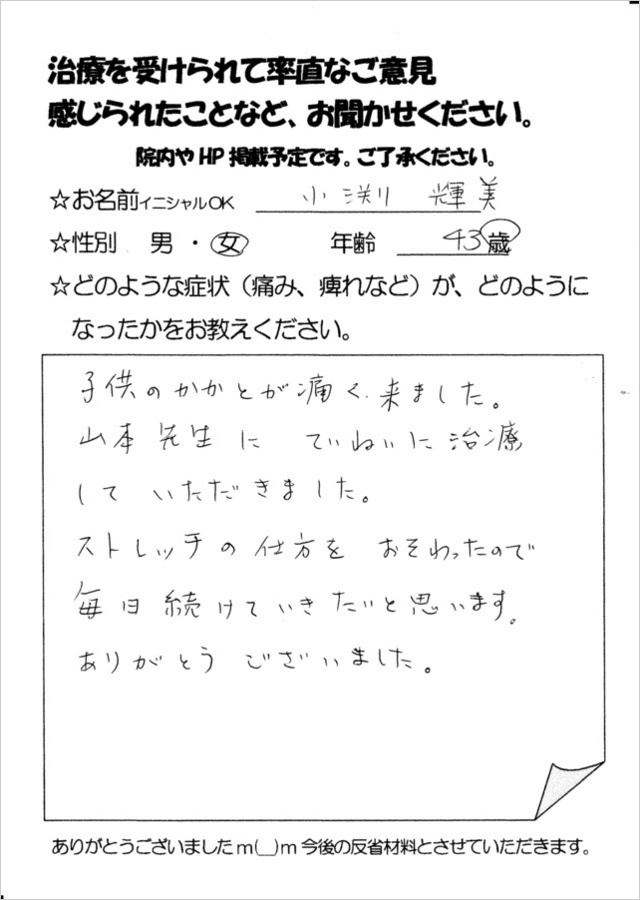 治療を受けられて率直なご意見
感じられたことなど、お聞かせください。
院内やHP掲載予定です。ご了承ください。
☆お名前イニシャルOK 小渕 輝美
☆性別 男・女 年齢 43歳
☆どのような症状（痛み、痺れなど）が、どのように
なったかをお教えください。
子供のかかとが痛く来ました。
山本先生に ていねいに治療
して いただきました。
ストレッチの仕方を おそわったので
毎日続けていきたいと思います。
ありがとう ございました。
ありがとうございましたm(__)m今後の反省材料とさせていただきます。